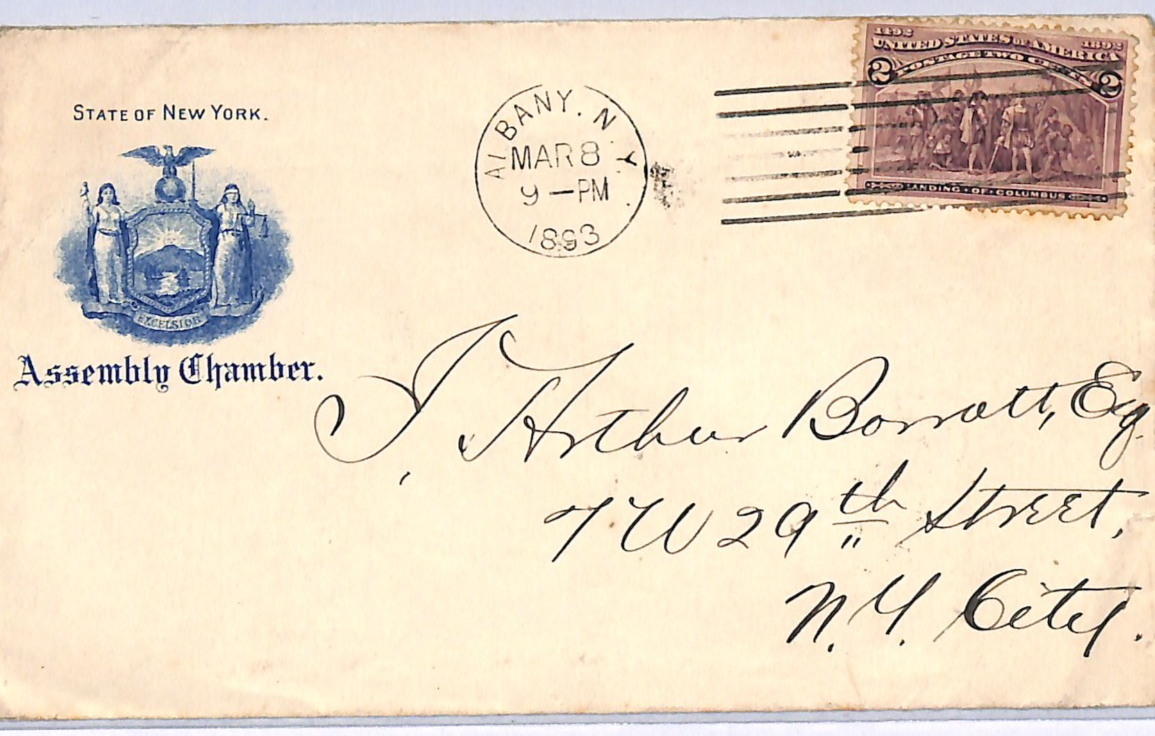 STATE OF NEW YORK.
EXCELSIOR
Assembly Chamber.
ALBANY, N Y
MAR 8
9 — PM
1893
1492 1892
UNITED STATES OF AMERICA
2 POSTAGE TWO CENTS 2
LANDING · OF · COLUMBUS
J. Arthur Barratt, Esq.
7 W 29th Street,
N. Y. City.